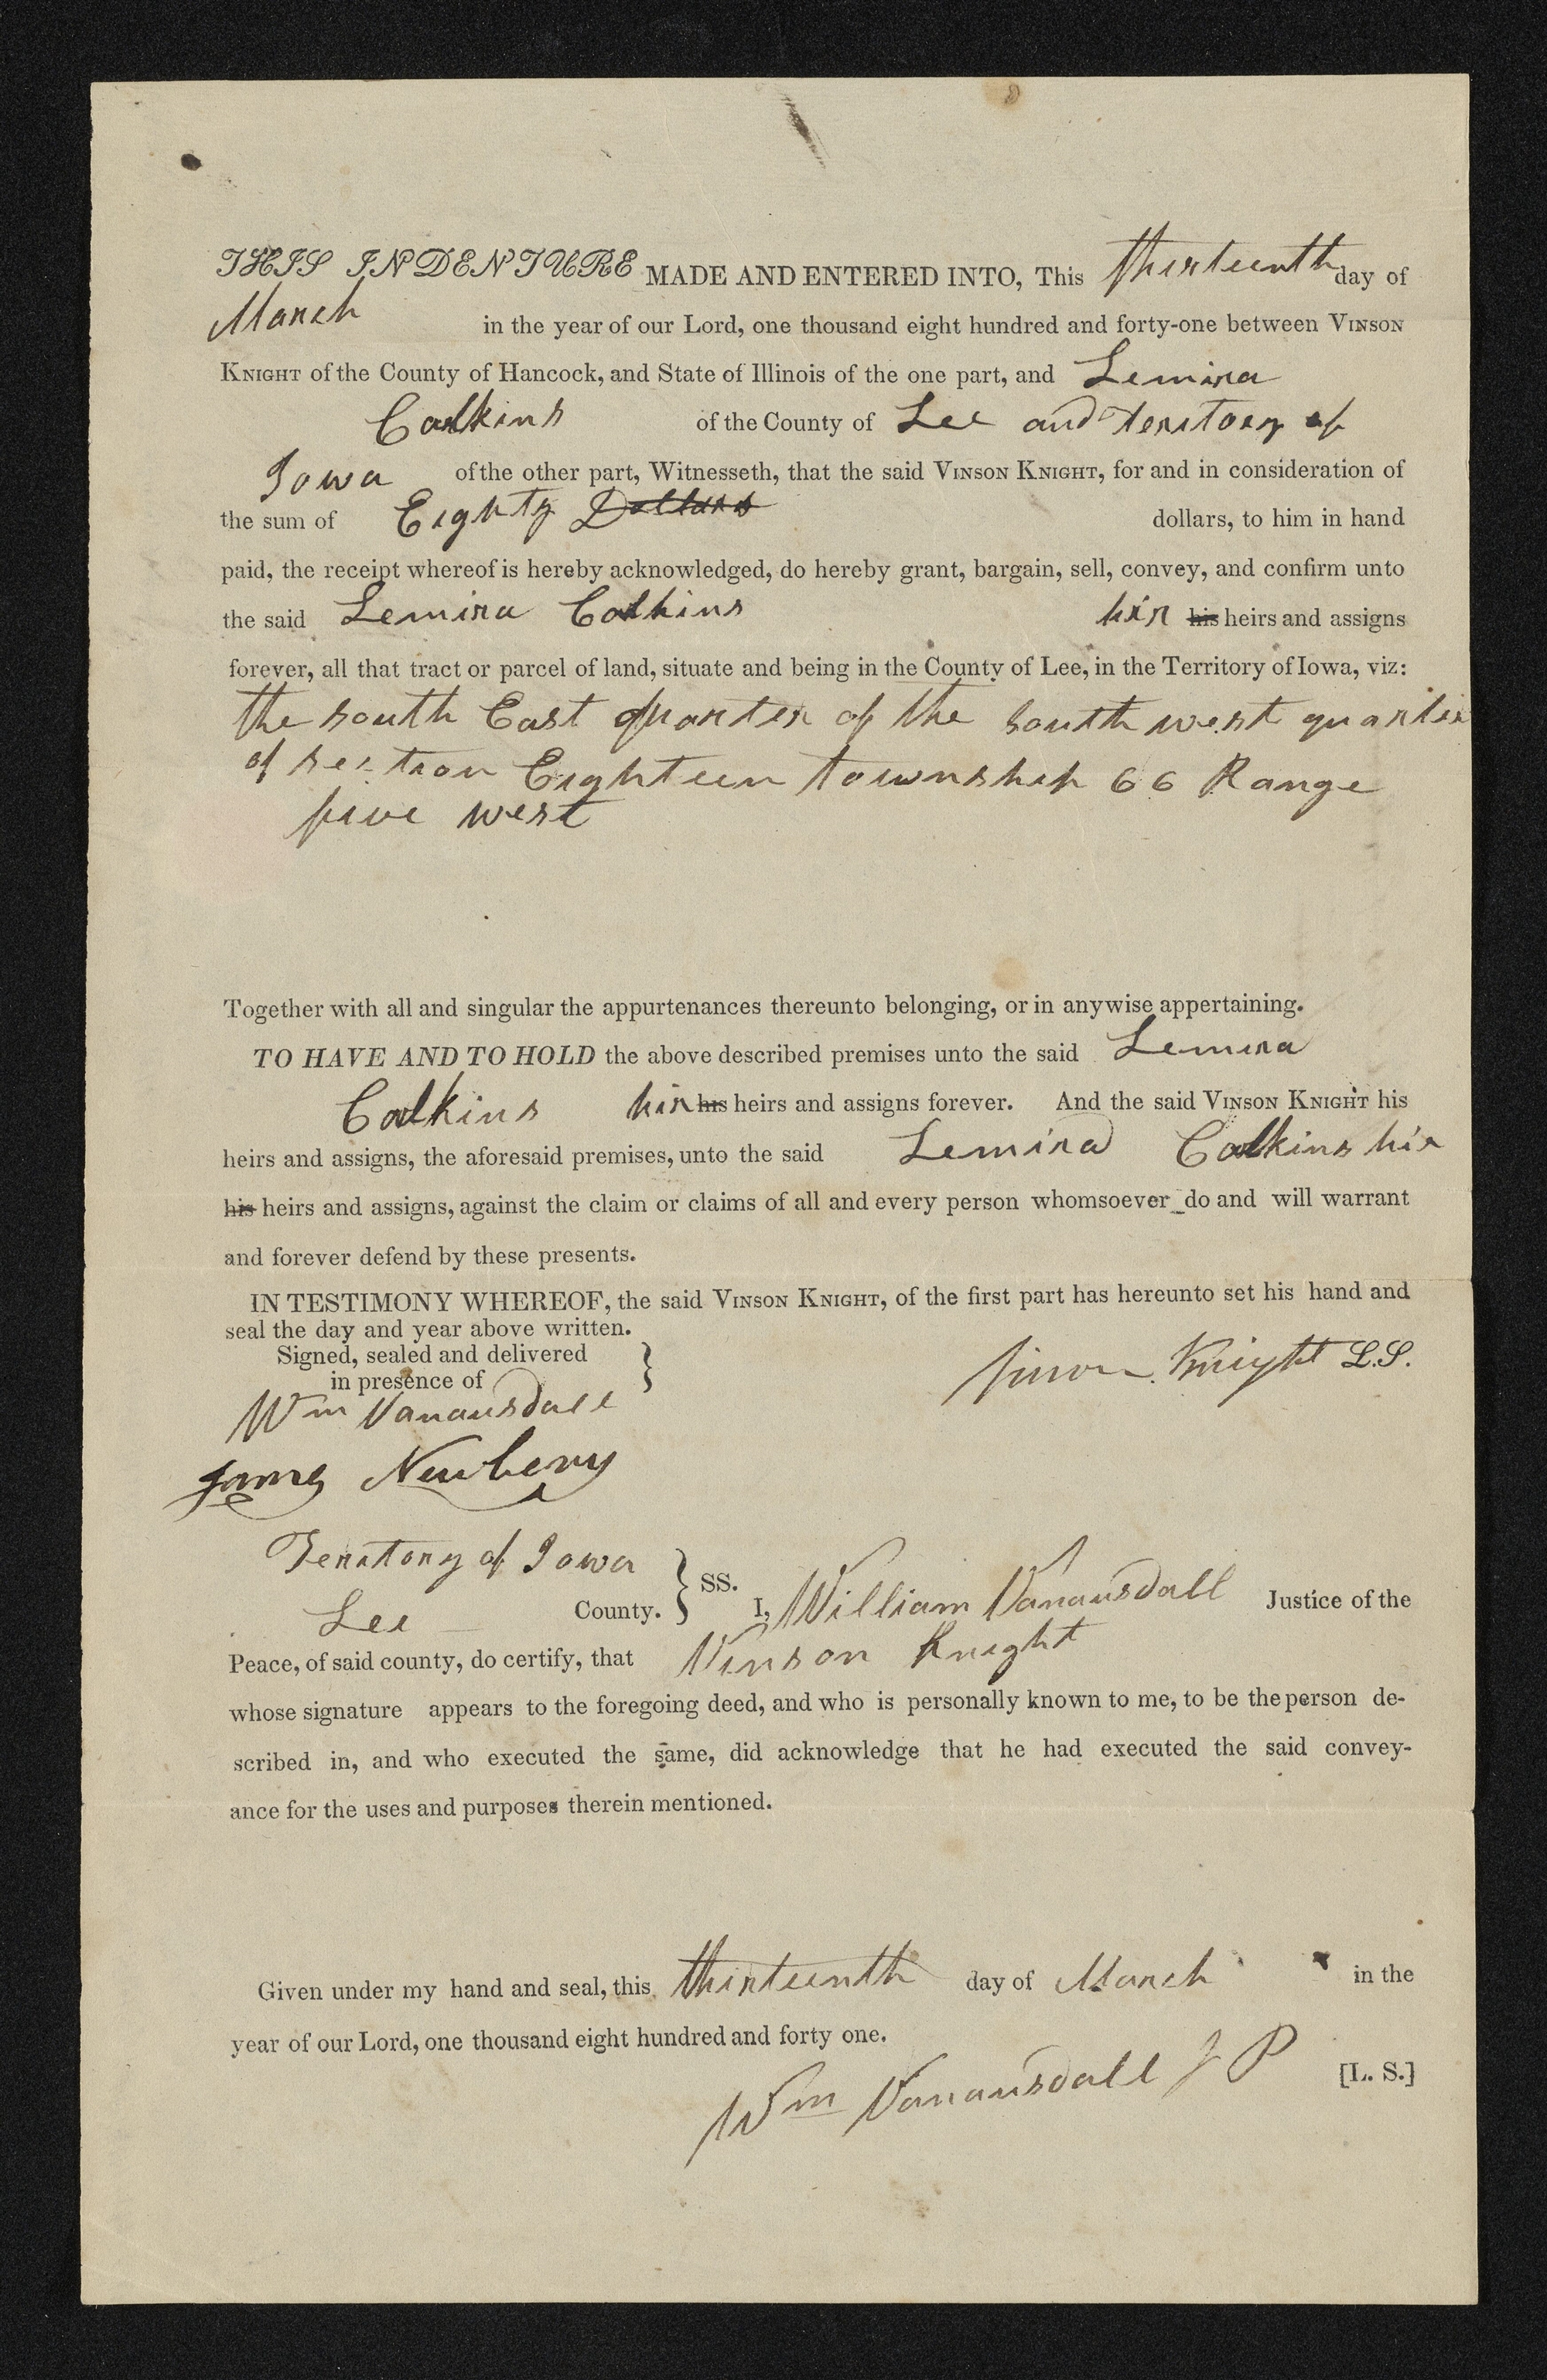 THIS INDENTURE MADE AND ENTERED INTO, This thirteenth day of
March in the year of our Lord, one thousand eight hundred and forty-one between Vinson
Knight of the County of Hancock, and State of Illinois of the one part, and Lemira
Calkins of the County of Lee and Territory of
Iowa of the other part, Witnesseth, that the said Vinson Knight, for and in consideration of
the sum of Eighty Dollars dollars, to him in hand
paid, the receipt whereof is hereby acknowledged, do hereby grant, bargain, sell, convey, and confirm unto
the said Lemira Calkins hir his heirs and assigns
forever, all that tract or parcel of land, situate and being in the County of Lee, in the Territory of Iowa, viz:
the south East quarter of the south west quarter
of section Eighteen township 66 Range
five west
Together with all and singular the appurtenances thereunto belonging, or in anywise appertaining.
TO HAVE AND TO HOLD the above described premises unto the said Lemira
Calkins hir his heirs and assigns forever. And the said Vinson Knight his
heirs and assigns, the aforesaid premises, unto the said Lemira Calkins hir
his heirs and assigns, against the claim or claims of all and every person whomsoever do and will warrant
and forever defend by these presents.
IN TESTIMONY WHEREOF, the said Vinson Knight, of the first part has hereunto set his hand and
seal the day and year above written.
Signed, sealed and delivered
in presence of
Vinson Knight L.S.
Wm Vanausdall
James Newbery
Territory of Iowa
Lee County. } SS. I, William Vanausdall Justice of the
Peace, of said county, do certify, that Vinson Knight
whose signature appears to the foregoing deed, and who is personally known to me, to be the person de-
scribed in, and who executed the same, did acknowledge that he had executed the said convey-
ance for the uses and purposes therein mentioned.
Given under my hand and seal, this thirteenth day of March in the
year of our Lord, one thousand eight hundred and forty one.
Wm Vanausdall J P [L. S.]